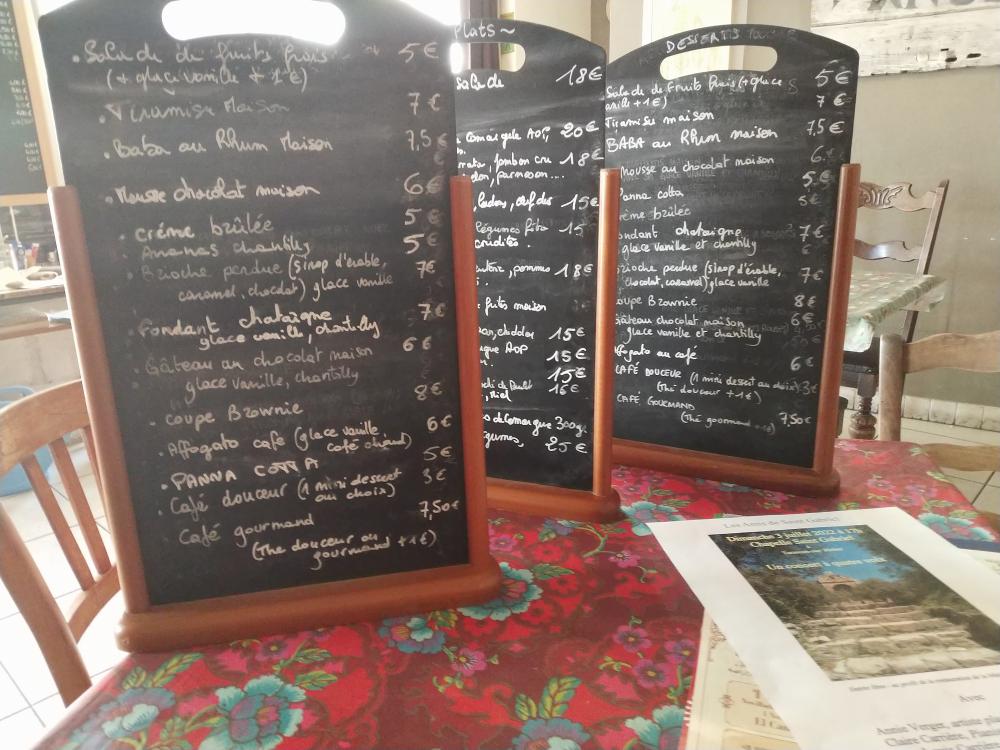 • Salade de fruits frais 5€
(+ glace vanille + 1€)
• Tiramisu Maison 7€
• Baba au Rhum Maison 7,5€
• Mousse chocolat maison 6€
• crème brûlée 5€
• Ananas chantilly 5€
• Brioche perdue (sirop d'érable, 7€
caramel, chocolat) glace vanille
• Fondant chataîgne 7€
glace vanille, chantilly
• Gâteau au chocolat maison 6€
glace vanille, chantilly
• coupe Brownie 8€
• Affogato cafe (glace vanille, 6€
café chaud)
• PANNA COTTA 5€
• Café douceur (1 mini dessert 3€
au choix)
• Café gourmand 7,50€
(The douceur ou
gourmand +1€)
PLATS ~
salade 18€
Camargue AOP, 20€
jambon cru 18€
parmesan....
15€
légumes frits 15
crudités.
pomme 18€
frites maison
cheddar 15€
AOP 15€
15€
miel 16€
de Camargue 300g
légumes, 25€
DESSERTS
Salade de fruits frais (+ glace 5€
vanille + 1€)
Tiramisu maison 7€
BABA au Rhum maison 7,5€
mousse au chocolat maison 6€
Panna cotta 5€
crème brûlée 5€
Fondant chataigne 7€
glace vanille et chantilly
Brioche perdue (sirop d'érable, 7€
chocolat, caramel) glace vanille
coupe Brownie 8€
Gâteau chocolat maison 6€
glace vanille et chantilly
Affogato au café 6€
CAFÉ DOUCEUR (1 mini dessert au choix) 3€
(thé douceur +1€)
CAFÉ GOURMAND 7,50€
(Thé gourmand +1€)
Les Amis de Saint Gabriel
Dimanche 3 juillet 2022 à 17h
Chapelle Saint Gabriel
Un concert à quatre mains
Avec
Annie Verger, artiste
Claire Carrière,